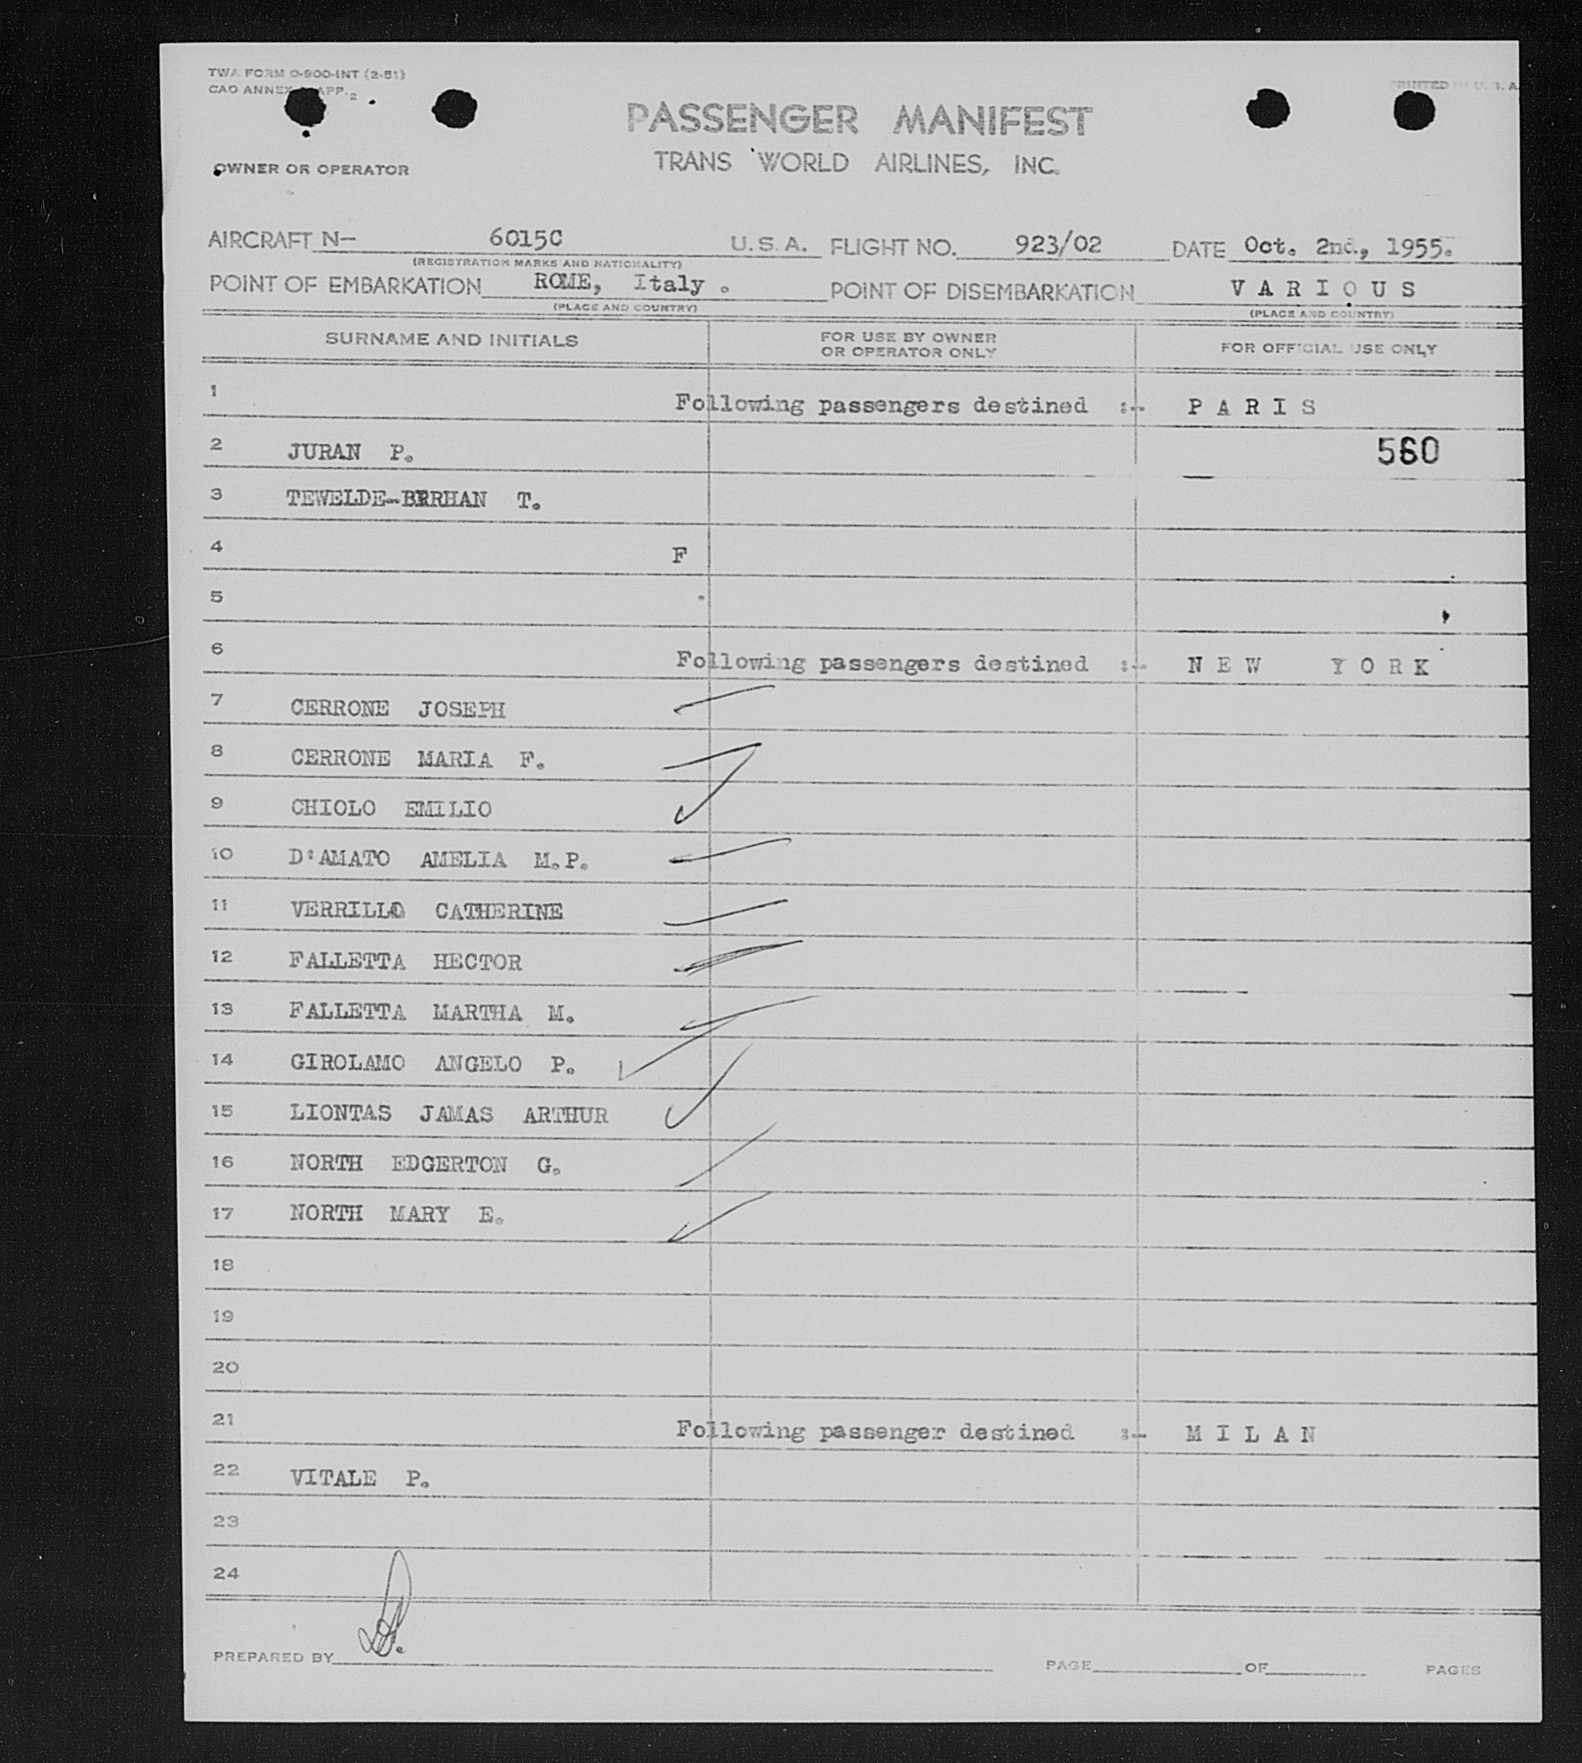 TWA FORM O-900-INT (2-51)
CAO ANNEX APP. 2
PRINTED IN U. S. A.
PASSENGER MANIFEST
TRANS WORLD AIRLINES, INC.
OWNER OR OPERATOR
AIRCRAFT N- 6015C U. S. A. FLIGHT NO. 923/02 DATE Oct. 2nd., 1955.
(REGISTRATION MARKS AND NATIONALITY)
POINT OF EMBARKATION ROME, Italy . POINT OF DISEMBARKATION V A R I O U S
(PLACE AND COUNTRY) (PLACE AND COUNTRY)
SURNAME AND INITIALS FOR USE BY OWNER OR OPERATOR ONLY FOR OFFICIAL USE ONLY
1 Following passengers destined :- P A R I S
2 JURAN P. 560
3 TEWELDE-BERHAN T.
4 F
5
6 Following passengers destined :- N E W Y O R K
7 CERRONE JOSEPH
8 CERRONE MARIA F.
9 CHIOLO EMILIO
10 D'AMATO AMELIA M.P.
11 VERRILLO CATHERINE
12 FALLETTA HECTOR
13 FALLETTA MARTHA M.
14 GIROLAMO ANGELO P.
15 LIONTAS JAMAS ARTHUR
16 NORTH EDGERTON G.
17 NORTH MARY E.
18
19
20
21 Following passenger destined :- M I L A N
22 VITALE P.
23
24
PREPARED BY PAGE OF PAGES